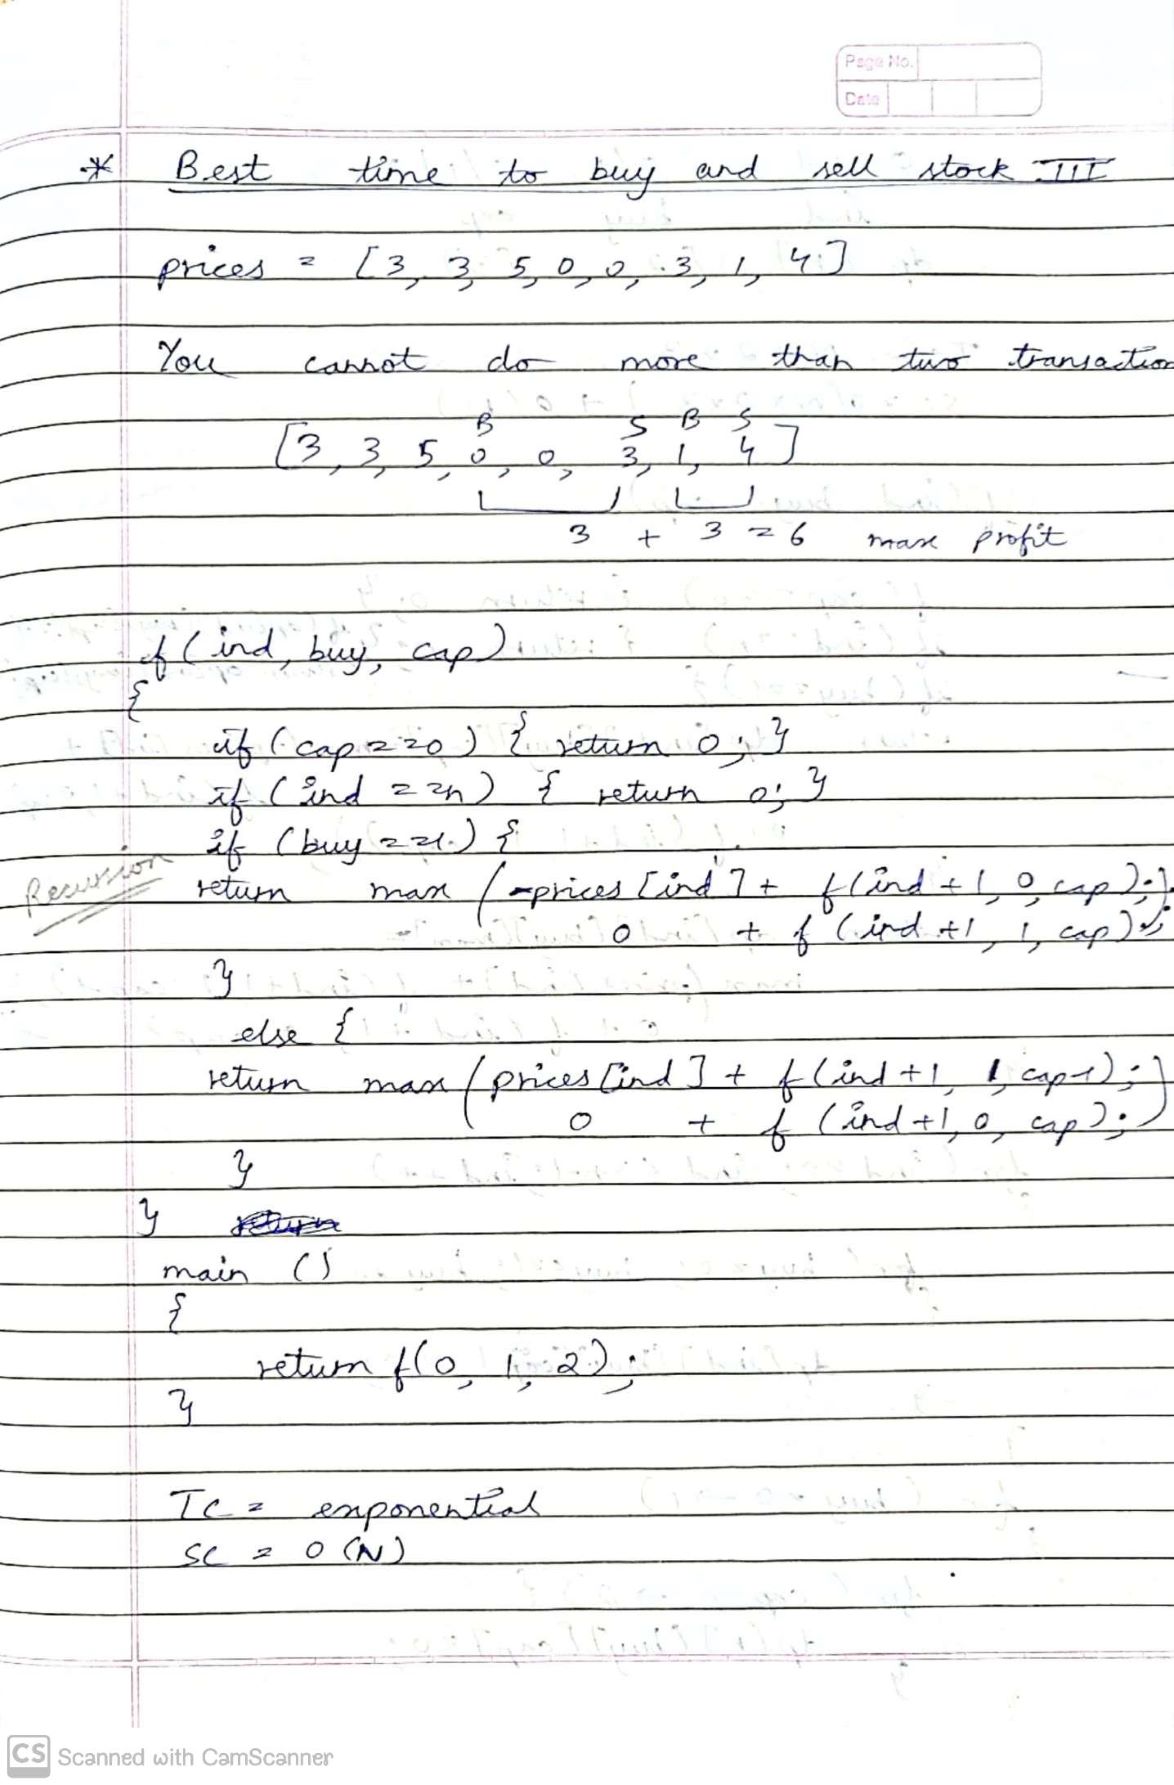 Page No.
Date
* Best time to buy and sell stock III
prices = [3, 3, 5, 0, 0, 3, 1, 4]
You cannot do more than two transaction
B S B S
[3, 3, 5, 0, 0, 3, 1, 4]
3 + 3 = 6 max profit
f (ind, buy, cap)
{
if (cap == 0) { return 0; }
if (ind == n) { return 0; }
if (buy == 1) {
Recursion
return max (-prices [ind] + f(ind + 1, 0, cap);
0 + f (ind +1, 1, cap));
}
else {
return max (prices [ind] + f (ind +1, 1, cap-1);
0 + f (ind +1, 0, cap); )
}
}
main ()
{
return f(0, 1, 2);
}
TC = exponential
SC = O (N)
CS Scanned with CamScanner